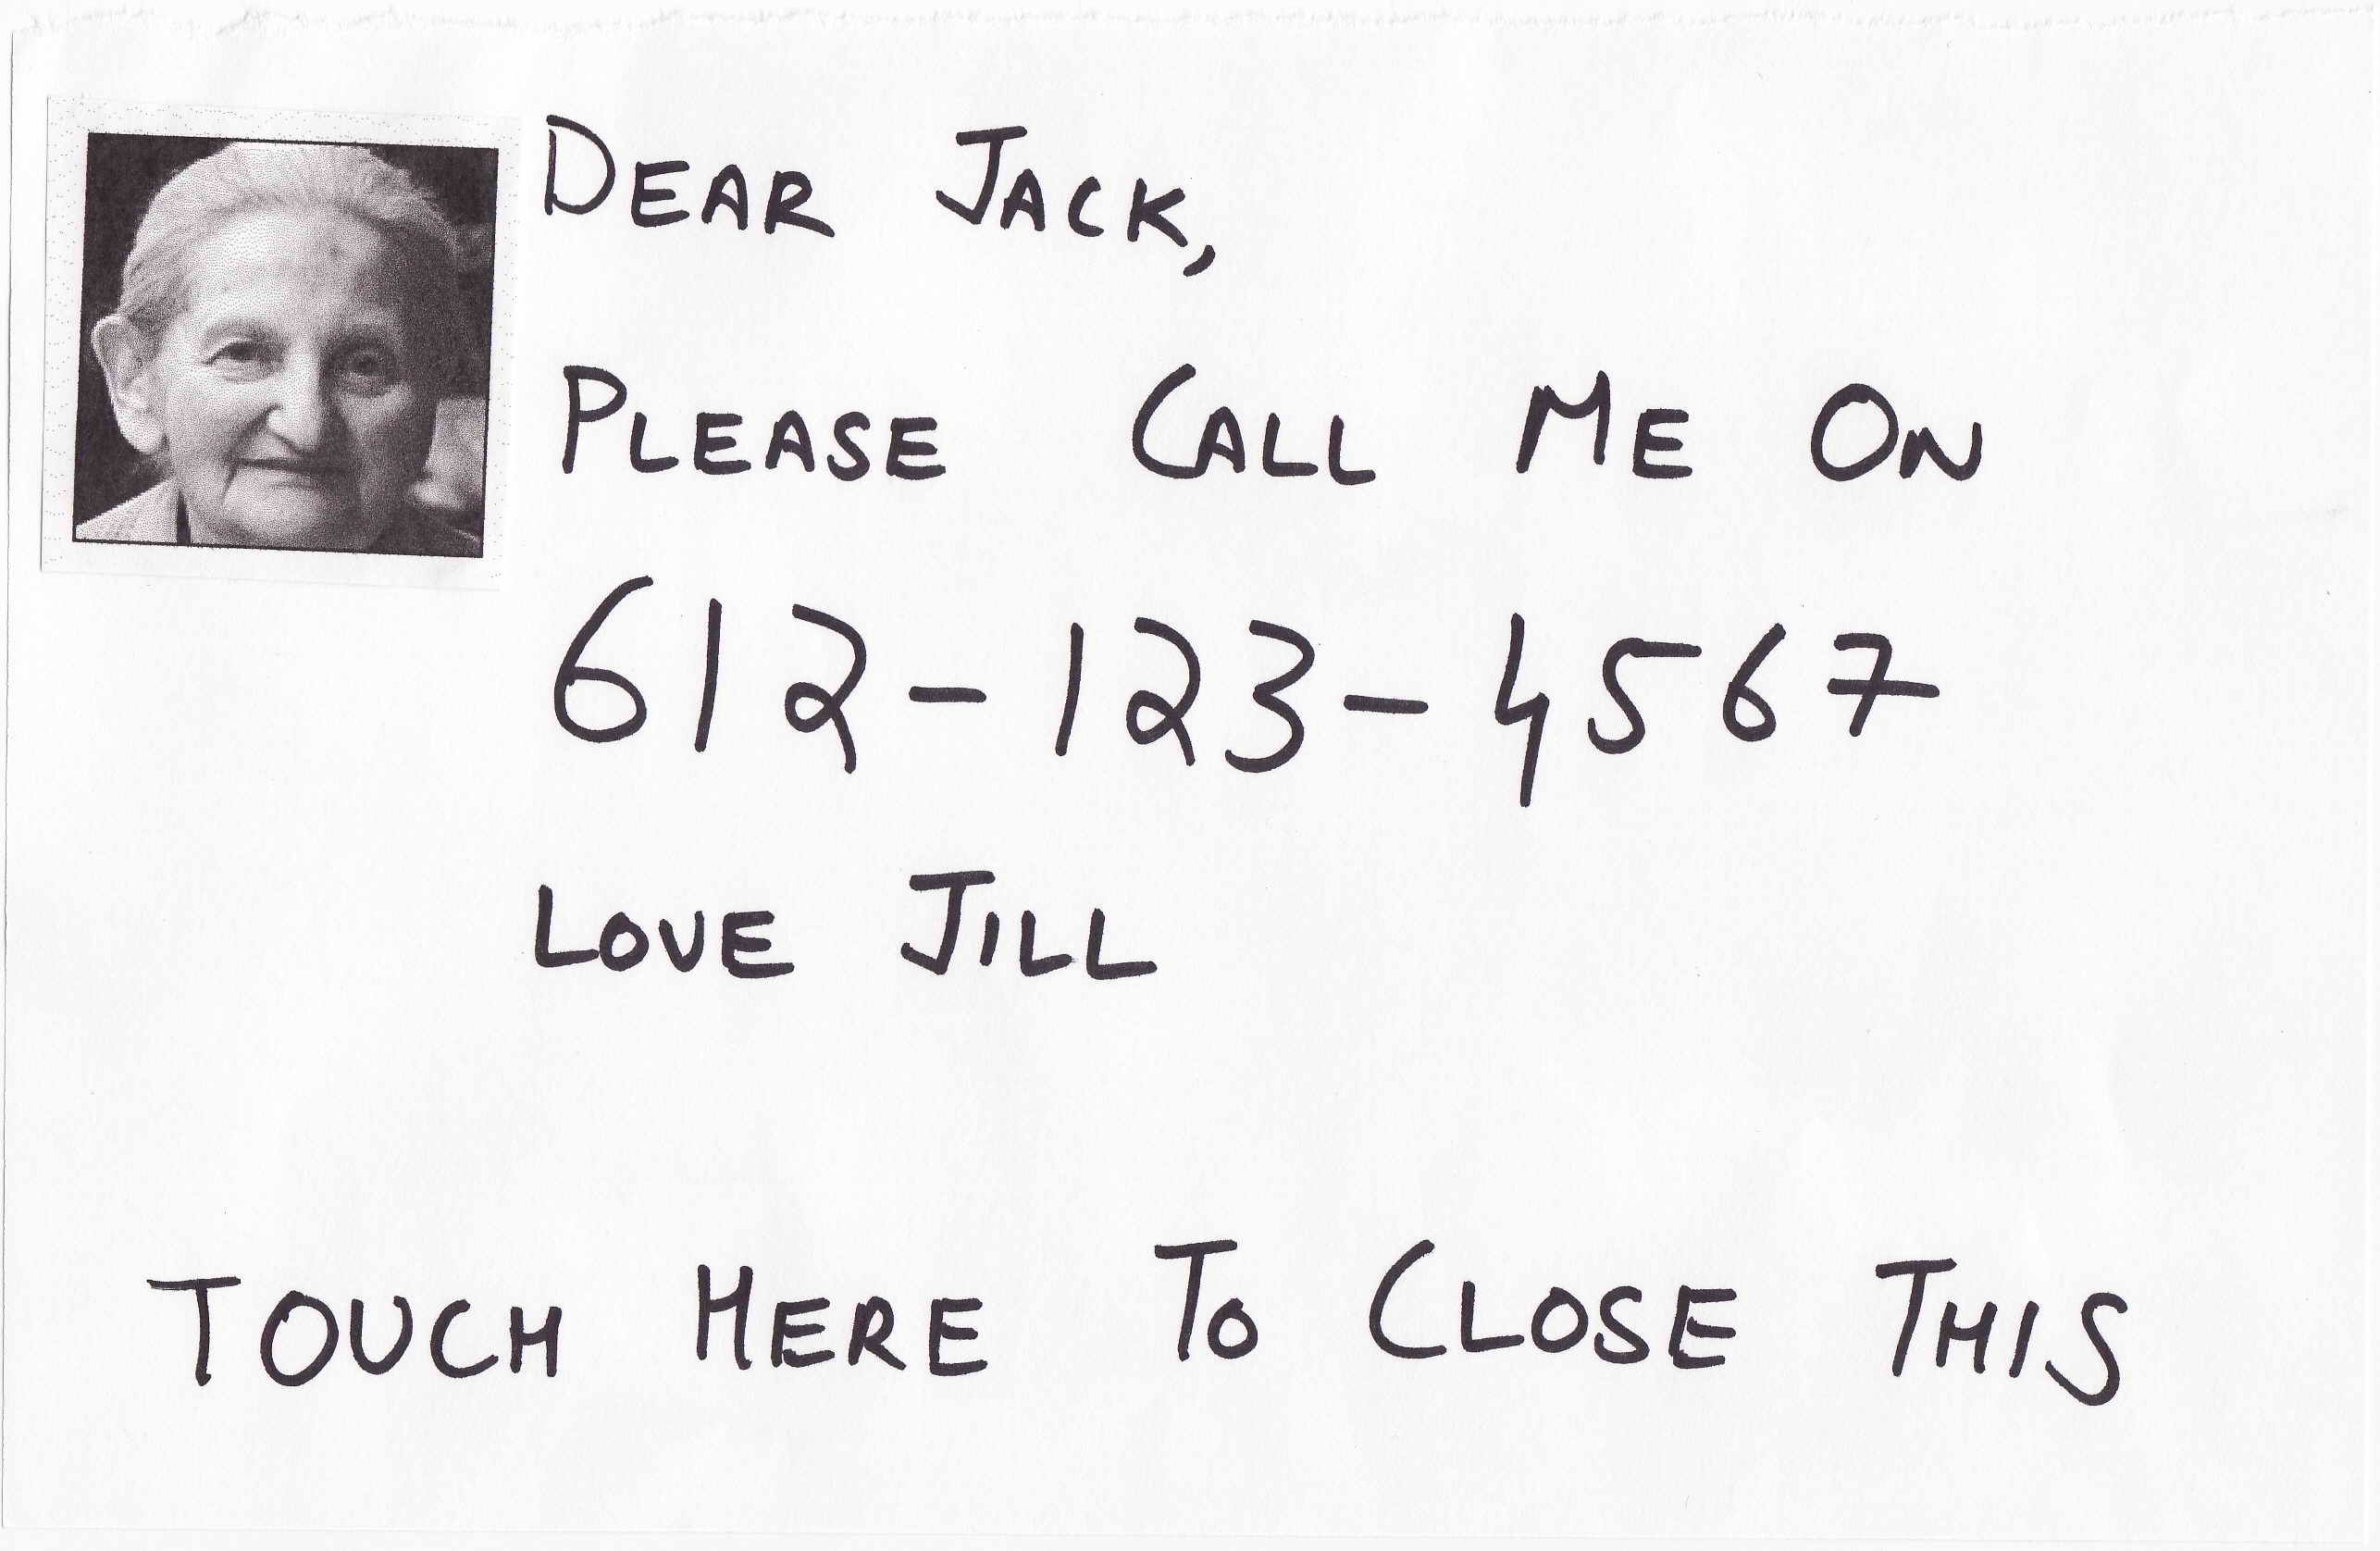 DEAR JACK,
PLEASE CALL ME ON
612-123-4567
LOVE JILL
TOUCH HERE TO CLOSE THIS